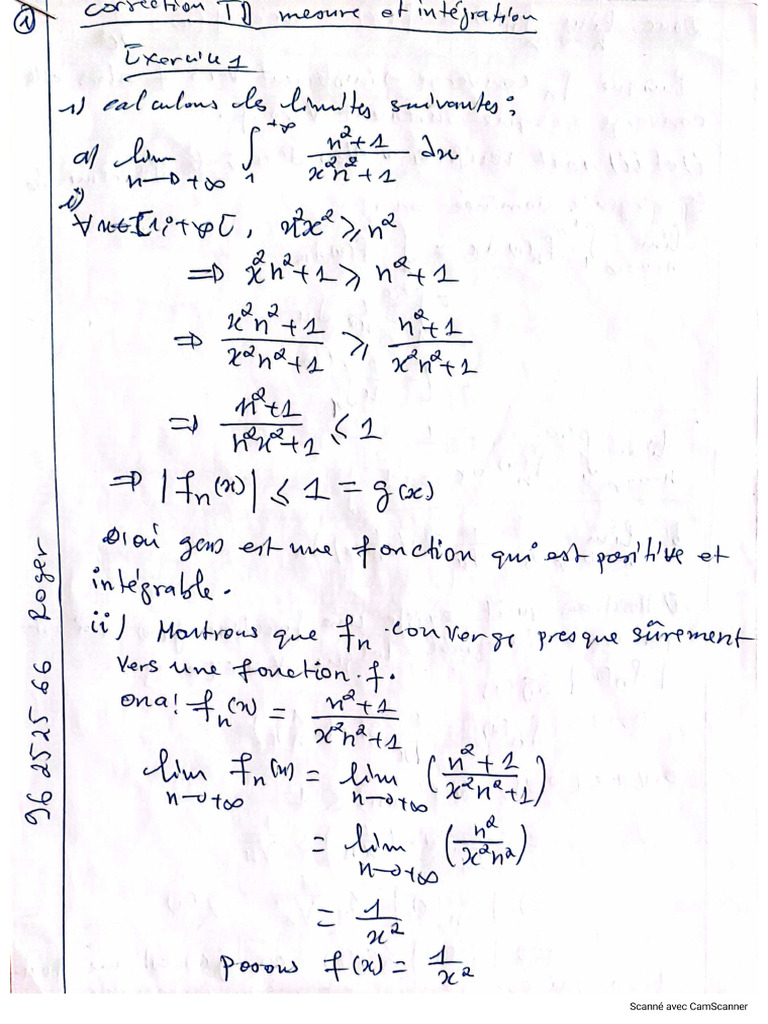 ①
correction TD mesure et intégration
Exercice 1
1) calculons les limites suivantes:
a) lim n→+∞ ∫₁^{+∞} (n²+1)/(x²n²+1) dx
i)
∀x∈[1;+∞[, n²x² ≥ n²
⇒ x²n²+1 ≥ n²+1
⇒ (x²n²+1)/(x²n²+1) ≥ (n²+1)/(x²n²+1)
⇒ (n²+1)/(n²x²+1) ≤ 1
⇒ |fₙ(x)| ≤ 1 = g(x)
D'où g(x) est une fonction qui est positive et
intégrable.
ii) Montrons que fₙ converge presque sûrement
vers une fonction f.
on a! fₙ(x) = (n²+1)/(x²n²+1)
lim n→+∞ fₙ(x) = lim n→+∞ ((n²+1)/(x²n²+1))
= lim n→+∞ (n²/(x²n²))
= 1/x²
posons f(x) = 1/x²
96 25 25 66 Roger
Scanné avec CamScanner